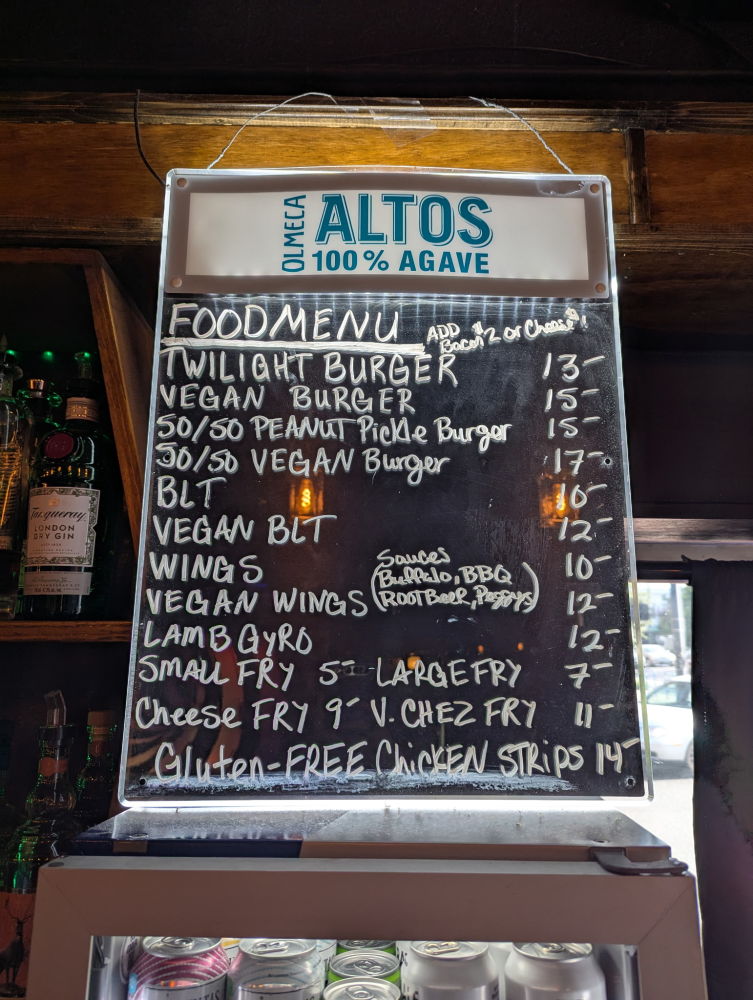 OLMECA ALTOS
100% AGAVE
FOOD MENU ADD Bacon $2 or Cheese $1
TWILIGHT BURGER 13-
VEGAN BURGER 15-
50/50 PEANUT Pickle Burger 15-
50/50 VEGAN Burger 17-
BLT 10-
VEGAN BLT 12-
WINGS 10-
VEGAN WINGS (Sauces Buffalo, BBQ ROOT Beer, Peggys) 12-
LAMB GYRO 12-
SMALL FRY 5- LARGE FRY 7-
Cheese FRY 9- V. CHEZ FRY 11-
Gluten-FREE CHICKEN STRIPS 14-
Tanqueray
LONDON
DRY GIN